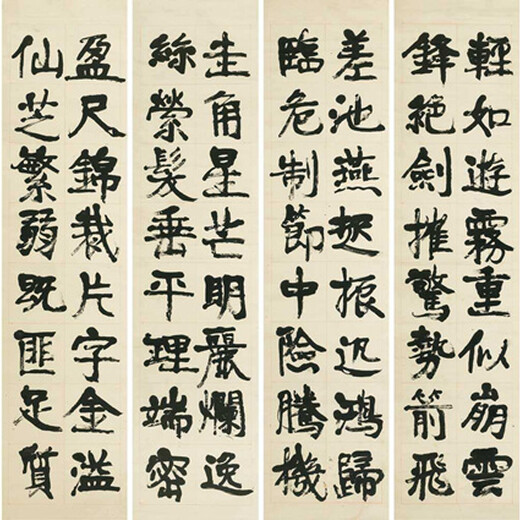 輕如遊霧重似崩雲
鋒絕劍摧驚勢箭飛
差池燕起振迅鴻歸
臨危制節中險騰機
圭角星芒明麗爛逸
絲縈髮垂平理端密
盈尺錦裁片字金溢
仙芝繁弱既匪足質